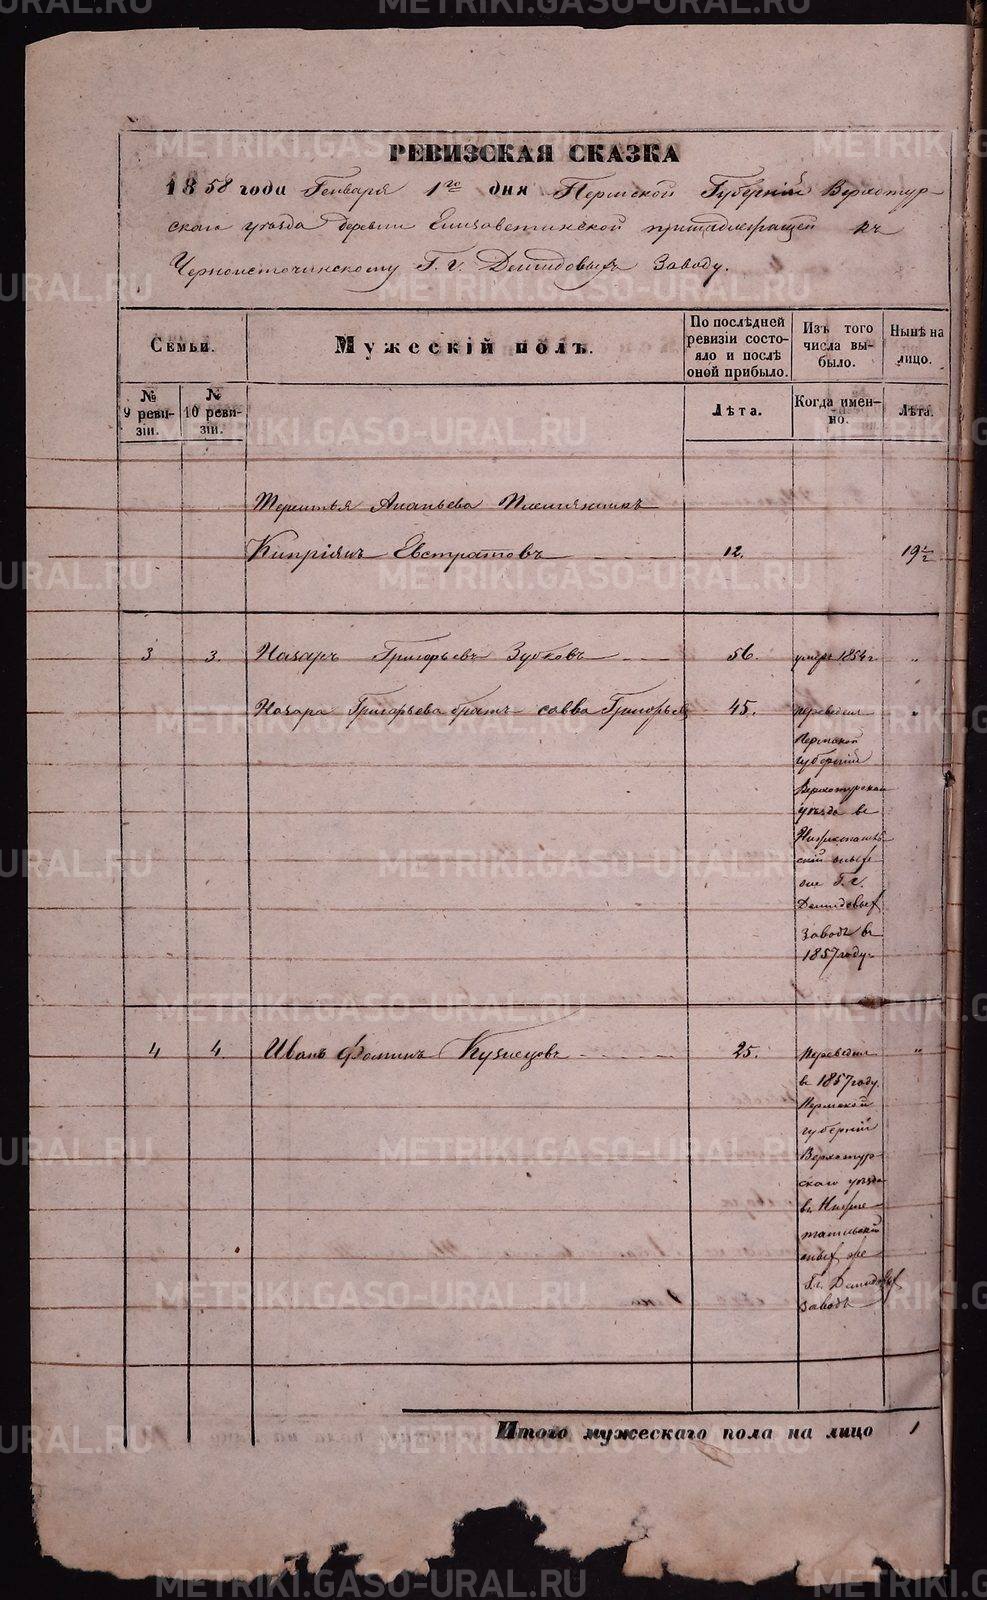 РЕВИЗСКАЯ СКАЗКА
1858 года Генваря 1го дня Пермской Губернiи Верхотур-
скаго уѣзда деревни Елизаветинской принадлежащей къ
Черноисточинскому Г.г. Демидовыхъ заводу.
Семьи.
Мужескiй полъ.
По послѣдней ревизiи состо-
яло и послѣ
оной прибыло.
Изъ того
числа вы-
было.
Нынѣ на
лицо.
№
9 реви-
зiи.
№
10 реви-
зiи.
Лѣта.
Когда имен-
но.
Лѣта.
Терентья Ананьева племянникъ
Кипрiянъ Евстратовъ 12. 19 1/2
3 3. Назаръ Григорьевъ Зубковъ 56. умеръ 1854 г „
Назара Григорьева братъ Савва Григорьевъ 45. переведен „
Пермской
губернiи
Верхотурскаго
уѣзда въ
Нижнетагиль-
скiй
Г.г.
Демидовых
заводъ въ
1857 году
4 4. Иванъ Фоминъ Кузнецовъ 25. переведен „
въ 1857 году
Пермской
губернiи
Верхотур-
скаго уѣзда
въ Нижне-
тагильскiй
оных же
Г.г. Демидовых
заводъ
Итого мужескаго пола на лицо 1
METRIKI.GASO-URAL.RU